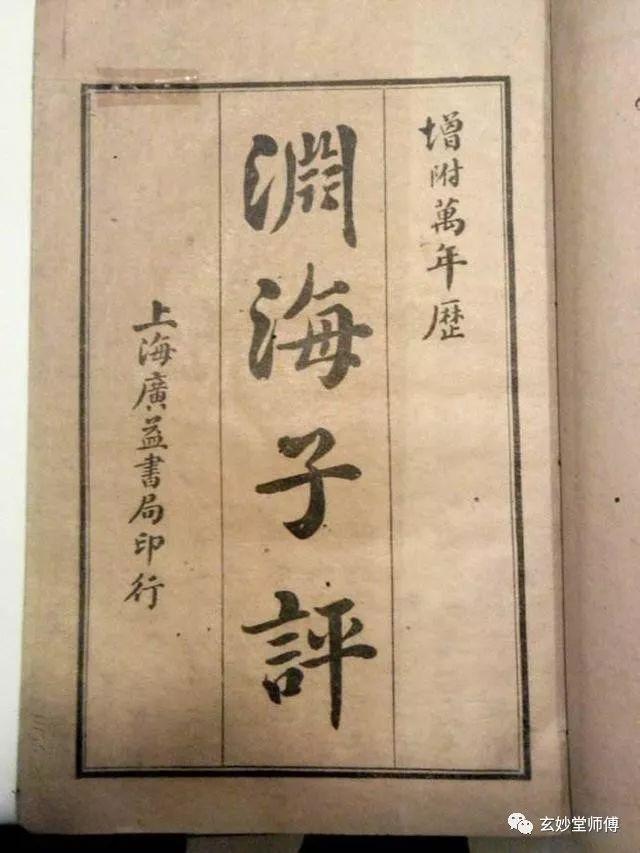 增附萬年歴
淵海子評
上海廣益書局印行
玄妙堂师傅